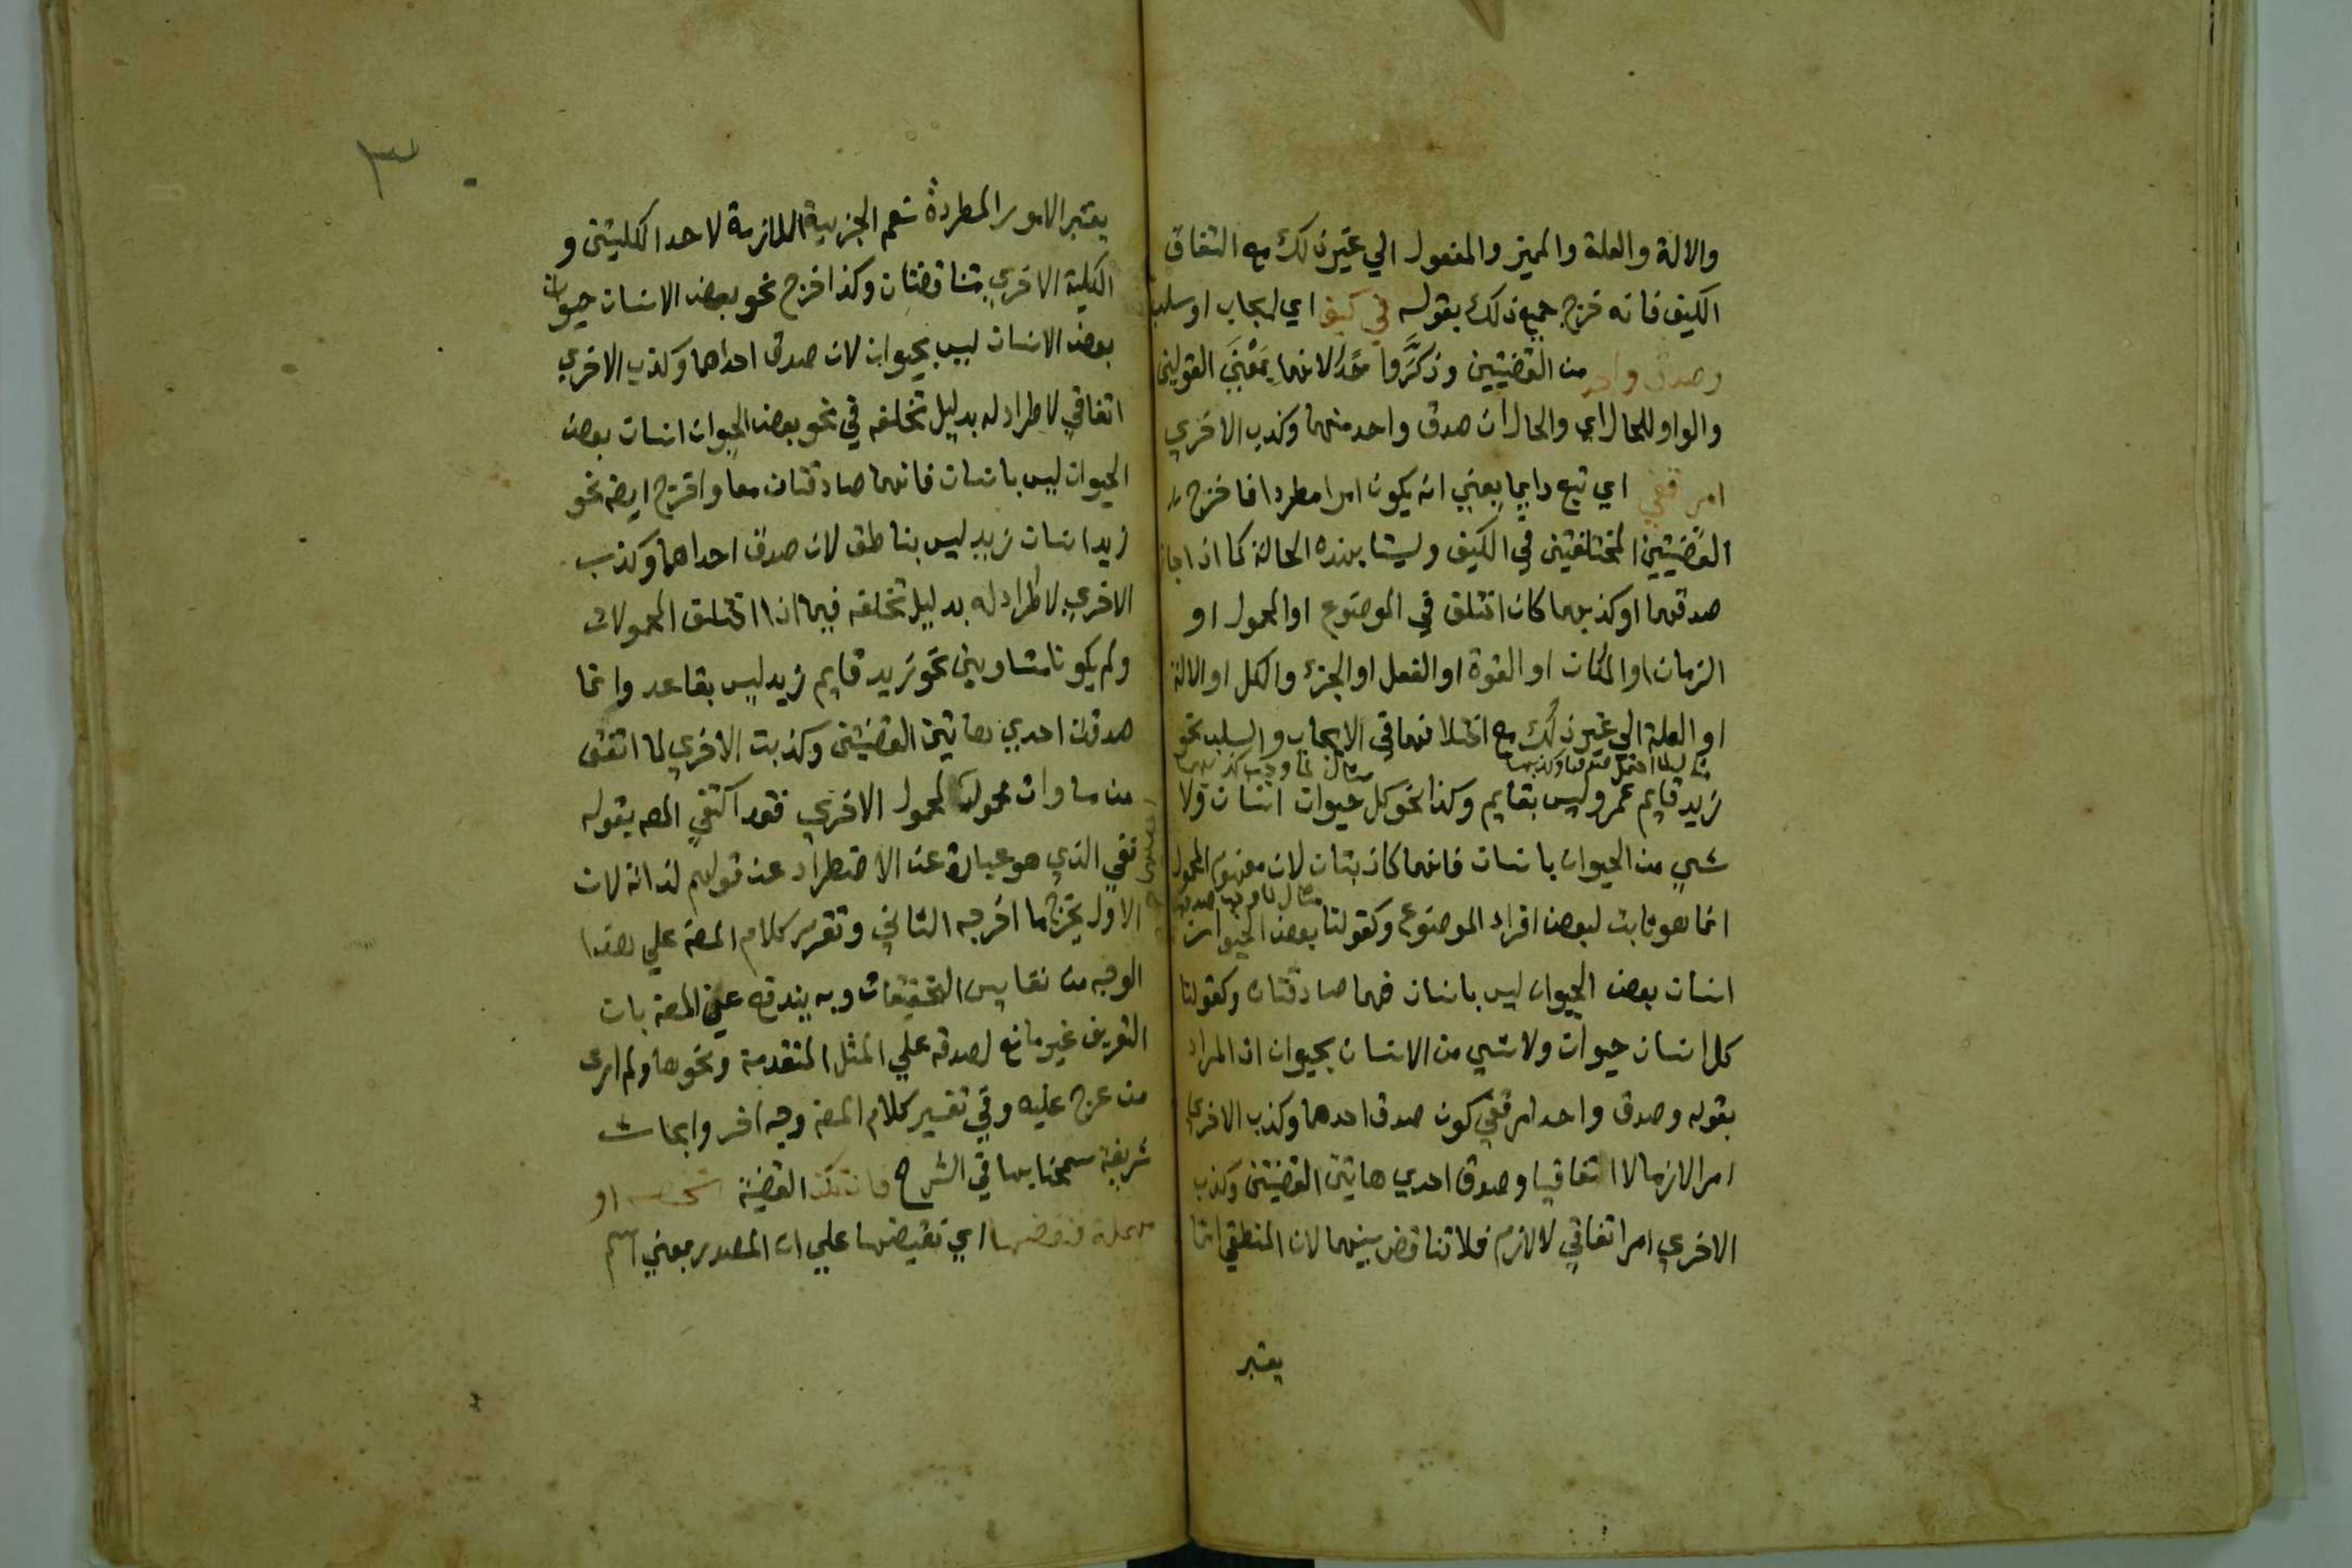 والالة والعلة والمميز والمفعول الي غير ذلك مع اتفاق
الكيف فانه خرج جميع ذلك بقوله في كيف اي ايجاب او سلب
وصدق واحد من القضيتين وذكر واحد لانهما بمعني القولين
والواو للحال اي والحال ان صدق واحد منهما وكذب الاخري
امر قفي اي تبع دايما يعني انه يكون امرا مطردا فاخرج
القضيتين المختلفتين في الكيف وليستا بهذه الحالة كما اذا جاز
صدقهما او كذبهما كان اختلق في الموضوع او المحمول او
الزمان او المكان او القوة او الفعل او الجزء والكل او الالة
او العلة الي غير ذلك مع اختلافهما في الايجاب والسلب نحو
مثال لما احتمل صدقهما وكذبهما
مثال لما وجب كذبهما
زيد قايم عمرو ليس بقايم وكذا نحو كل حيوان انسان ولا
شي من الحيوان بانسان فانهما كاذبتان لان مفهوم المحمول
مثال لما وجب صدقهما
انما هو ثابت لبعض افراد الموضوع وكقولنا بعض الحيوان
انسان بعض الحيوان ليس بانسان فهما صادقتان وكقولنا
كل انسان حيوان ولا شي من الانسان بحيوان اذ المراد
بقوله وصدق واحد امر قفي كون صدق احدهما وكذب الاخري
امرا لازما لا اتفاقيا وصدق احدي هاتين القضيتين وكذب
الاخري امر اتفاقي لا لازم فلا تناقض بينهما لان المنطقي انما
يعتبر
٣
يعتبر الامور المطردة نعم الجزيية اللازمة لاحد الكليتين و
الكلية الاخري متناقضتان وكذا خرج نحو بعض الانسان حيوان
بعض الانسان ليس بحيوان لان صدق احداهما وكذب الاخري
اتفاقي لا طراد له بدليل تخلفه في نحو بعض الحيوان انسان بعض
الحيوان ليس بانسان فانهما صادقتان معا واخرج ايضه نحو
زيد انسان زيد ليس بناطق لان صدق احداهما وكذب
الاخري لا طراد له بدليل تخلفه فيما اذا اختلق المحمولان
ولم يكونا متساويين نحو زيد قايم زيد ليس بقاعد وانما
صدقت احدي هاتين القضيتين وكذبت الاخري لما اتفق
من مساوات محمولها لمحمول الاخري فقد اكتفي المصه بقوله
قفي الذي هو عبارة عن الاضطراد عن قولهم لذاته لان
الاول يخرج ما اخرجه الثاني وتقرير كلام المصه علي هذا
الوجه من نفايس التحقيقات وبه يندفع عن المصه بان
التعريف غير مانع لصدقه علي المثل المتقدمة ونحوها ولم ارى
من عرج عليه وفي تفسير كلام المصه وجه اخر وابحاث
شريفة سمحنا بها في الشرح فان تكن القضية شخصيه او
مهملة فنقضها اي نقيضها علي ان المصدر بمعني اسم